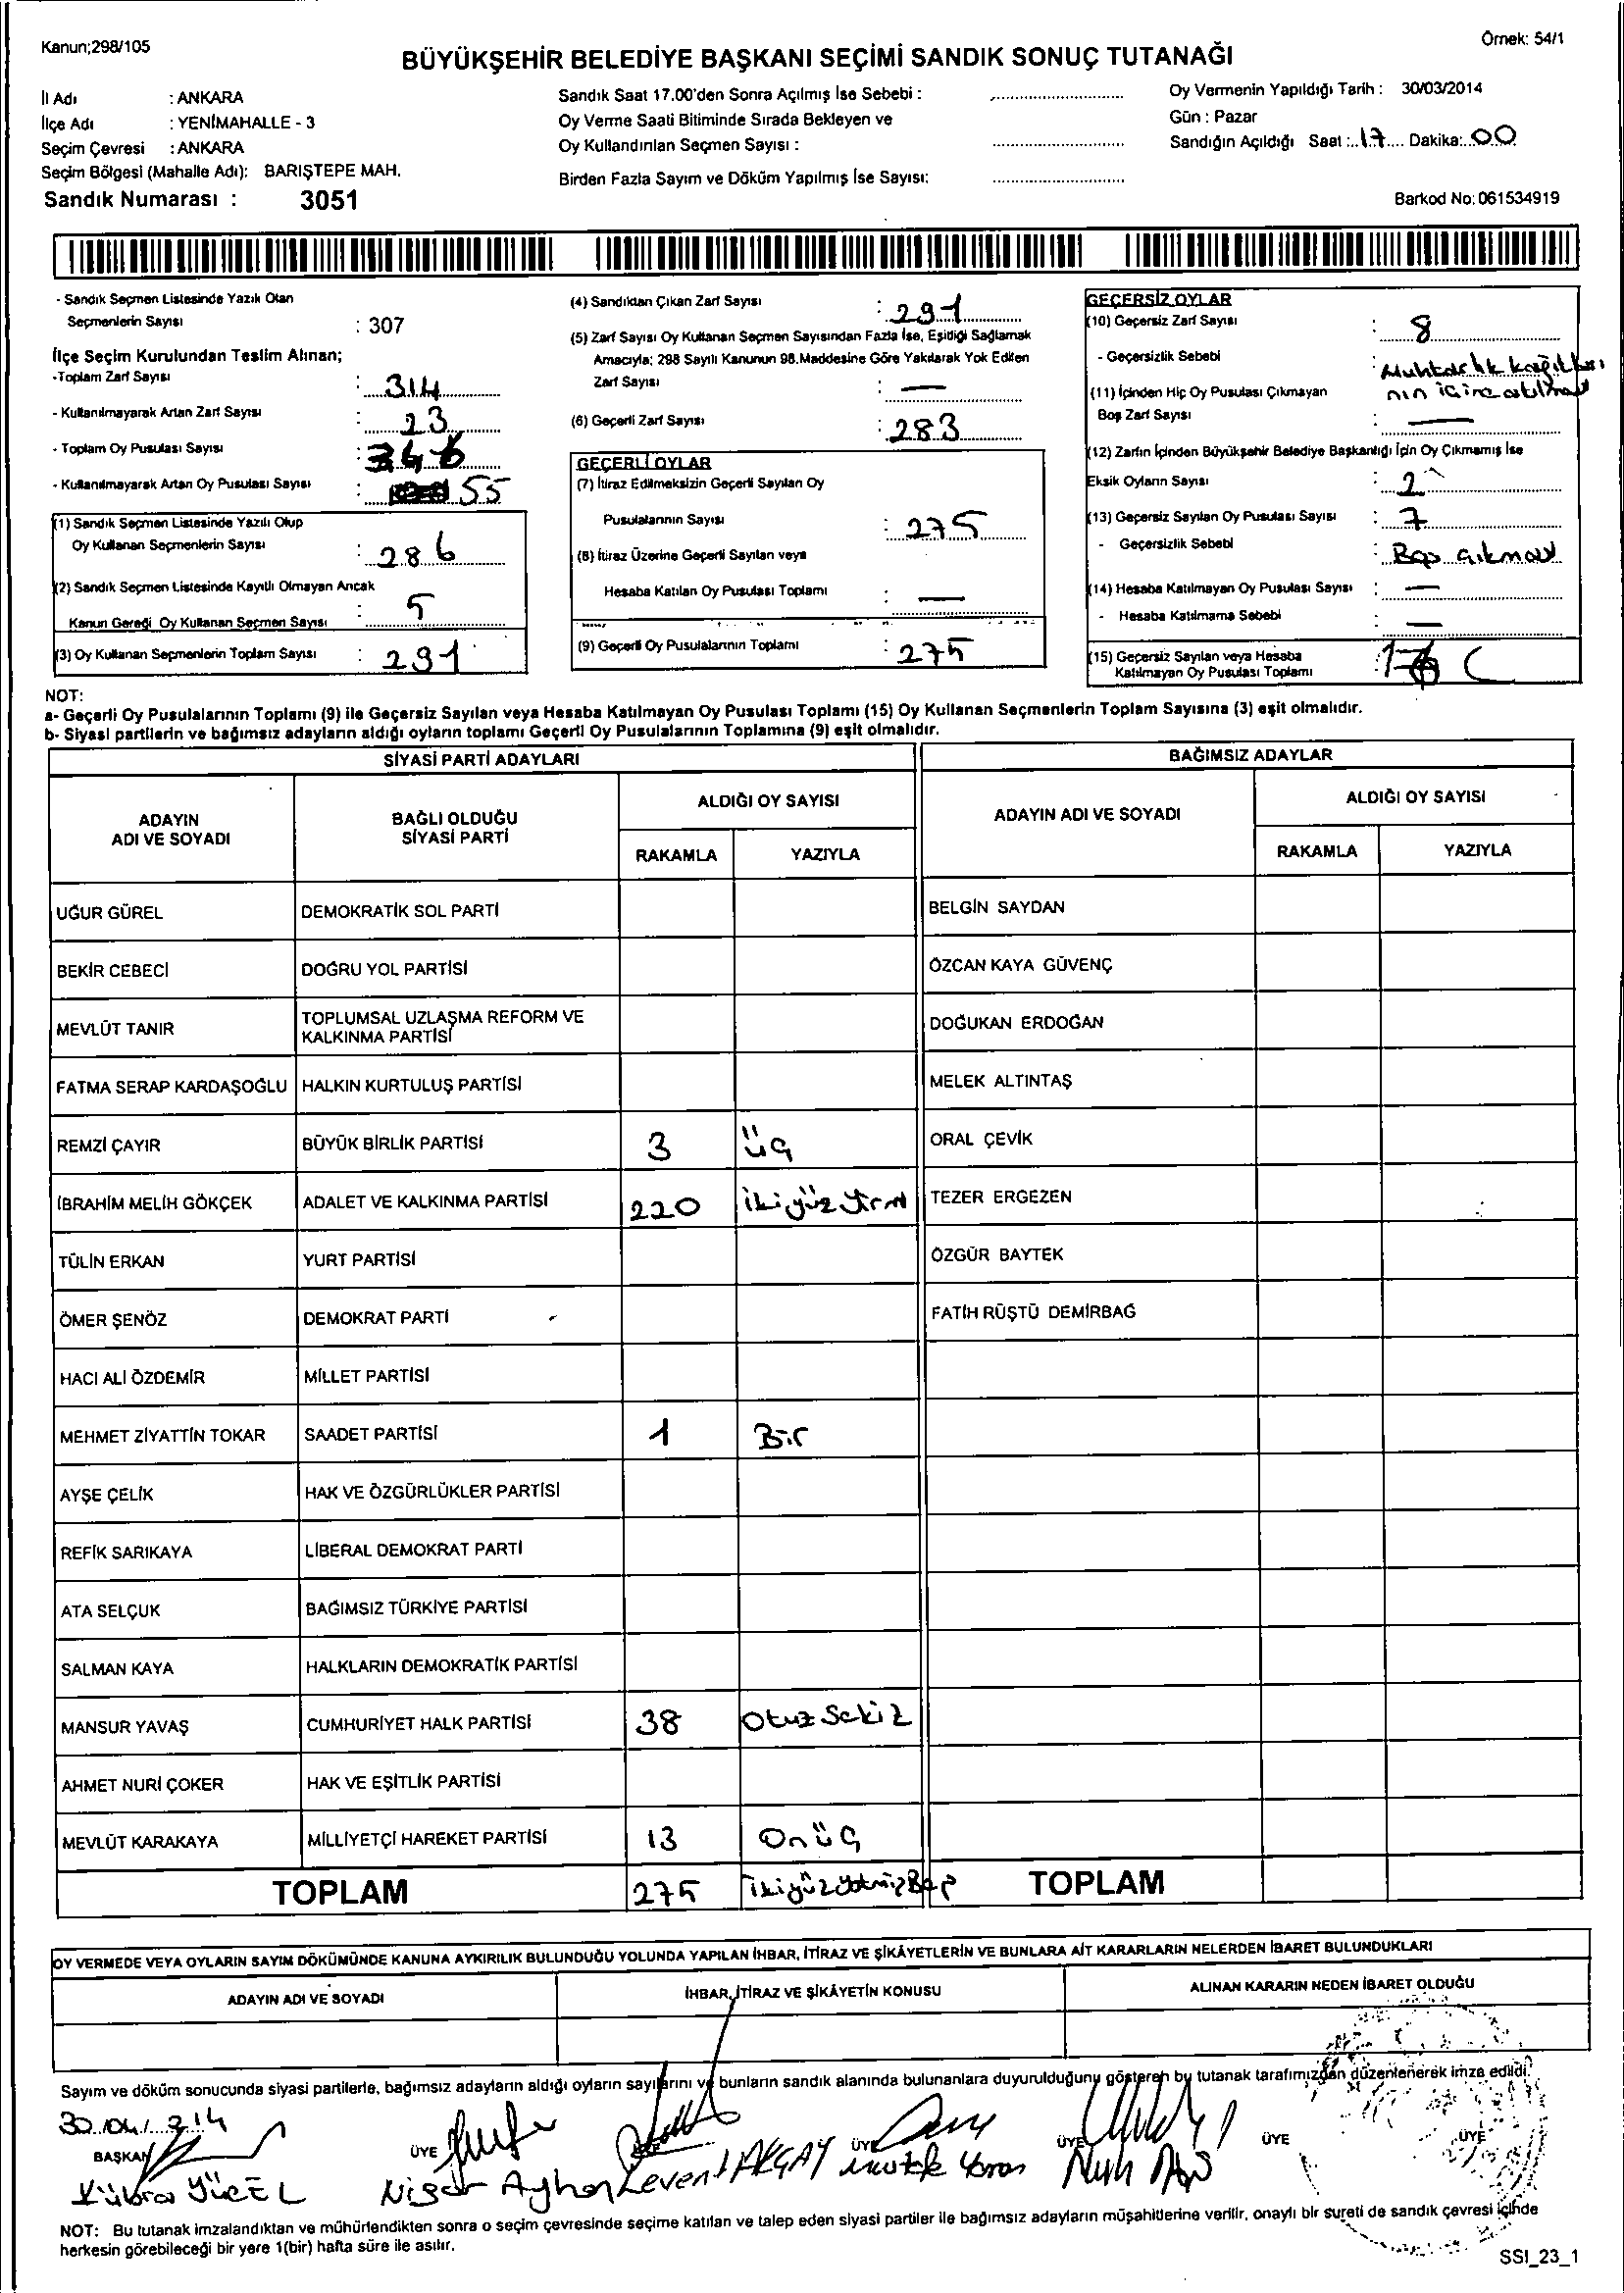 Kanun;298/105
Örnek: 54/1
BÜYÜKŞEHİR BELEDİYE BAŞKANI SEÇİMİ SANDIK SONUÇ TUTANAĞI
İl Adı : ANKARA
İlçe Adı : YENİMAHALLE - 3
Seçim Çevresi : ANKARA
Seçim Bölgesi (Mahalle Adı): BARIŞTEPE MAH.
Sandık Numarası : 3051
Sandık Saat 17.00'den Sonra Açılmış İse Sebebi :
Oy Verme Saati Bitiminde Sırada Bekleyen ve
Oy Kullandırılan Seçmen Sayısı :
Birden Fazla Sayım ve Döküm Yapılmış İse Sayısı:
Oy Vermenin Yapıldığı Tarih : 30/03/2014
Gün : Pazar
Sandığın Açıldığı Saat : 17 Dakika: 00
Barkod No: 061534919
- Sandık Seçmen Listesinde Yazılı Olan
Seçmenlerin Sayısı : 307
İlçe Seçim Kurulundan Teslim Alınan;
-Toplam Zarf Sayısı : 314
- Kullanılmayarak Artan Zarf Sayısı : 23
- Toplam Oy Pusulası Sayısı : 346
- Kullanılmayarak Artan Oy Pusulası Sayısı : 55
(1) Sandık Seçmen Listesinde Yazılı Olup
Oy Kullanan Seçmenlerin Sayısı : 286
(2) Sandık Seçmen Listesinde Kayıtlı Olmayan Ancak
Kanun Gereği Oy Kullanan Seçmen Sayısı : 5
(3) Oy Kullanan Seçmenlerin Toplam Sayısı : 291
(4) Sandıktan Çıkan Zarf Sayısı : 291
(5) Zarf Sayısı Oy Kullanan Seçmen Sayısından Fazla İse, Eşitliği Sağlamak
Amacıyla; 298 Sayılı Kanunun 98.Maddesine Göre Yakılarak Yok Edilen
Zarf Sayısı : —
(6) Geçerli Zarf Sayısı : 283
GEÇERLİ OYLAR
(7) İtiraz Edilmeksizin Geçerli Sayılan Oy
Pusulalarının Sayısı : 275
(8) İtiraz Üzerine Geçerli Sayılan veya
Hesaba Katılan Oy Pusulası Toplamı : —
(9) Geçerli Oy Pusulalarının Toplamı : 275
GEÇERSİZ OYLAR
(10) Geçersiz Zarf Sayısı : 8
- Geçersizlik Sebebi : Muhtarlık kağıtları
nın içine atılması
(11) İçinden Hiç Oy Pusulası Çıkmayan
Boş Zarf Sayısı : —
(12) Zarfın İçinden Büyükşehir Belediye Başkanlığı İçin Oy Çıkmamış İse
Eksik Oyların Sayısı : 2
(13) Geçersiz Sayılan Oy Pusulası Sayısı : 7
- Geçersizlik Sebebi : Boş çıkması
(14) Hesaba Katılmayan Oy Pusulası Sayısı : —
- Hesaba Katılmama Sebebi : —
(15) Geçersiz Sayılan veya Hesaba
Katılmayan Oy Pusulası Toplamı :
NOT:
a- Geçerli Oy Pusulalarının Toplamı (9) ile Geçersiz Sayılan veya Hesaba Katılmayan Oy Pusulası Toplamı (15) Oy Kullanan Seçmenlerin Toplam Sayısına (3) eşit olmalıdır.
b- Siyasi partilerin ve bağımsız adayların aldığı oyların toplamı Geçerli Oy Pusulalarının Toplamına (9) eşit olmalıdır.
SİYASİ PARTİ ADAYLARI BAĞIMSIZ ADAYLAR
ADAYIN ADI VE SOYADI BAĞLI OLDUĞU SİYASİ PARTİ ALDIĞI OY SAYISI ADAYIN ADI VE SOYADI ALDIĞI OY SAYISI
RAKAMLA YAZIYLA RAKAMLA YAZIYLA
UĞUR GÜREL DEMOKRATİK SOL PARTİ BELGİN SAYDAN
BEKİR CEBECİ DOĞRU YOL PARTİSİ ÖZCAN KAYA GÜVENÇ
MEVLÜT TANIR TOPLUMSAL UZLAŞMA REFORM VE KALKINMA PARTİSİ DOĞUKAN ERDOĞAN
FATMA SERAP KARDAŞOĞLU HALKIN KURTULUŞ PARTİSİ MELEK ALTINTAŞ
REMZİ ÇAYIR BÜYÜK BİRLİK PARTİSİ 3 üç ORAL ÇEVİK
İBRAHİM MELİH GÖKÇEK ADALET VE KALKINMA PARTİSİ 220 ikiyüz yirmi TEZER ERGEZEN
TÜLİN ERKAN YURT PARTİSİ ÖZGÜR BAYTEK
ÖMER ŞENÖZ DEMOKRAT PARTİ FATİH RÜŞTÜ DEMİRBAĞ
HACI ALİ ÖZDEMİR MİLLET PARTİSİ
MEHMET ZİYATTİN TOKAR SAADET PARTİSİ 1 Bir
AYŞE ÇELİK HAK VE ÖZGÜRLÜKLER PARTİSİ
REFİK SARIKAYA LİBERAL DEMOKRAT PARTİ
ATA SELÇUK BAĞIMSIZ TÜRKİYE PARTİSİ
SALMAN KAYA HALKLARIN DEMOKRATİK PARTİSİ
MANSUR YAVAŞ CUMHURİYET HALK PARTİSİ 38 Otuz Sekiz
AHMET NURİ ÇOKER HAK VE EŞİTLİK PARTİSİ
MEVLÜT KARAKAYA MİLLİYETÇİ HAREKET PARTİSİ 13 On üç
TOPLAM 275 ikiyüz yetmiş Beş TOPLAM
OY VERMEDE VEYA OYLARIN SAYIM DÖKÜMÜNDE KANUNA AYKIRILIK BULUNDUĞU YOLUNDA YAPILAN İHBAR, İTİRAZ VE ŞİKÂYETLERİN VE BUNLARA AİT KARARLARIN NELERDEN İBARET BULUNDUKLARI
ADAYIN ADI VE SOYADI İHBAR, İTİRAZ VE ŞİKÂYETİN KONUSU ALINAN KARARIN NEDEN İBARET OLDUĞU
Sayım ve döküm sonucunda siyasi partilerle, bağımsız adayların aldığı oyların sayılarını ve bunların sandık alanında bulunanlara duyurulduğunu gösteren bu tutanak tarafımızdan düzenlenerek imza edildi.
BAŞKAN ÜYE ÜYE ÜYE ÜYE ÜYE
Kübra YÜCEL Nigar Ayhan Levent AKÇAY Nuh
NOT: Bu tutanak imzalandıktan ve mühürlendikten sonra o seçim çevresinde seçime katılan ve talep eden siyasi partiler ile bağımsız adayların müşahitlerine verilir, onaylı bir sureti de sandık çevresi içinde
herkesin görebileceği bir yere 1(bir) hafta süre ile asılır.
SSI_23_1